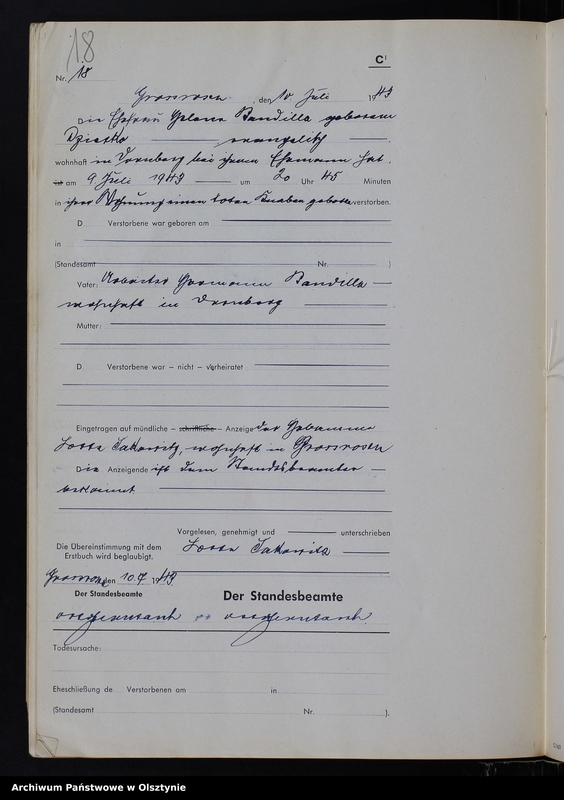 18
C¹
Nr. 18
Grosrosen, den 10 Juli 1943
Die Ehefrau Helene Bandilla geborene
Dziatko evangelisch
wohnhaft in Dornberg bei ihrem Ehemann hat
ist am 9. Juli 1943 um 20 Uhr 45 Minuten
in ihrer Wohnung einen toten Knaben geboren verstorben.
D Verstorbene war geboren am
in
(Standesamt Nr. )
Vater: Arbeiter Hermann Bandilla
wohnhaft in Dornberg
Mutter:
D Verstorbene war – nicht – verheiratet
Eingetragen auf mündliche – schriftliche – Anzeige der Hebamme
wohnhaft in Grosrosen
Die Anzeigende ist dem Standesbeamten
bekannt
Vorgelesen, genehmigt und unterschrieben
Die Übereinstimmung mit dem
Erstbuch wird beglaubigt.
Grosrosen den 10.7 1943
Der Standesbeamte
Der Standesbeamte
Todesursache:
Eheschließung de Verstorbenen am in
(Standesamt Nr. ).
Archiwum Państwowe w Olsztynie